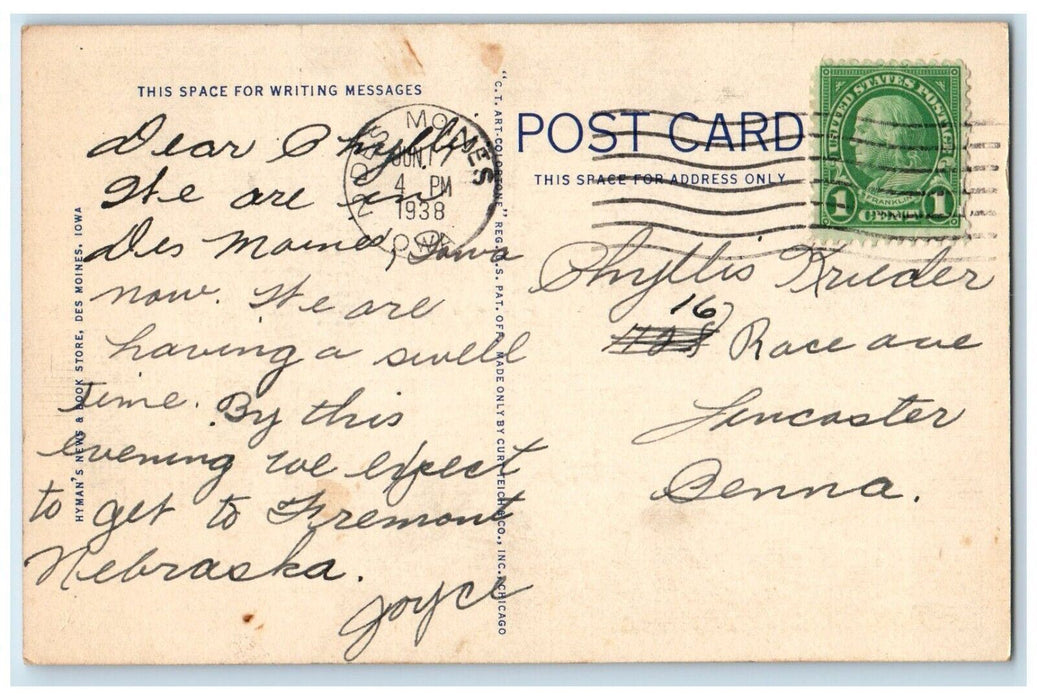 THIS SPACE FOR WRITING MESSAGES
Dear Phyllis
We are in
Des Moines, Iowa
now. We are
having a swell
time. By this
evening we expect
to get to Fremont
Nebraska.
Joyce
HYMAN'S NEWS & BOOK STORE, DES MOINES, IOWA
"C.T. ART-COLORTONE" REG. U.S. PAT. OFF. MADE ONLY BY CURT TEICH & CO., INC., CHICAGO
DES MOINES
JUN 17
4 PM
1938
IOWA
POST CARD
THIS SPACE FOR ADDRESS ONLY
UNITED STATES POSTAGE
FRANKLIN
1 CENT 1
Phyllis Krieder
16
Race ave
Lincaster
Penna.